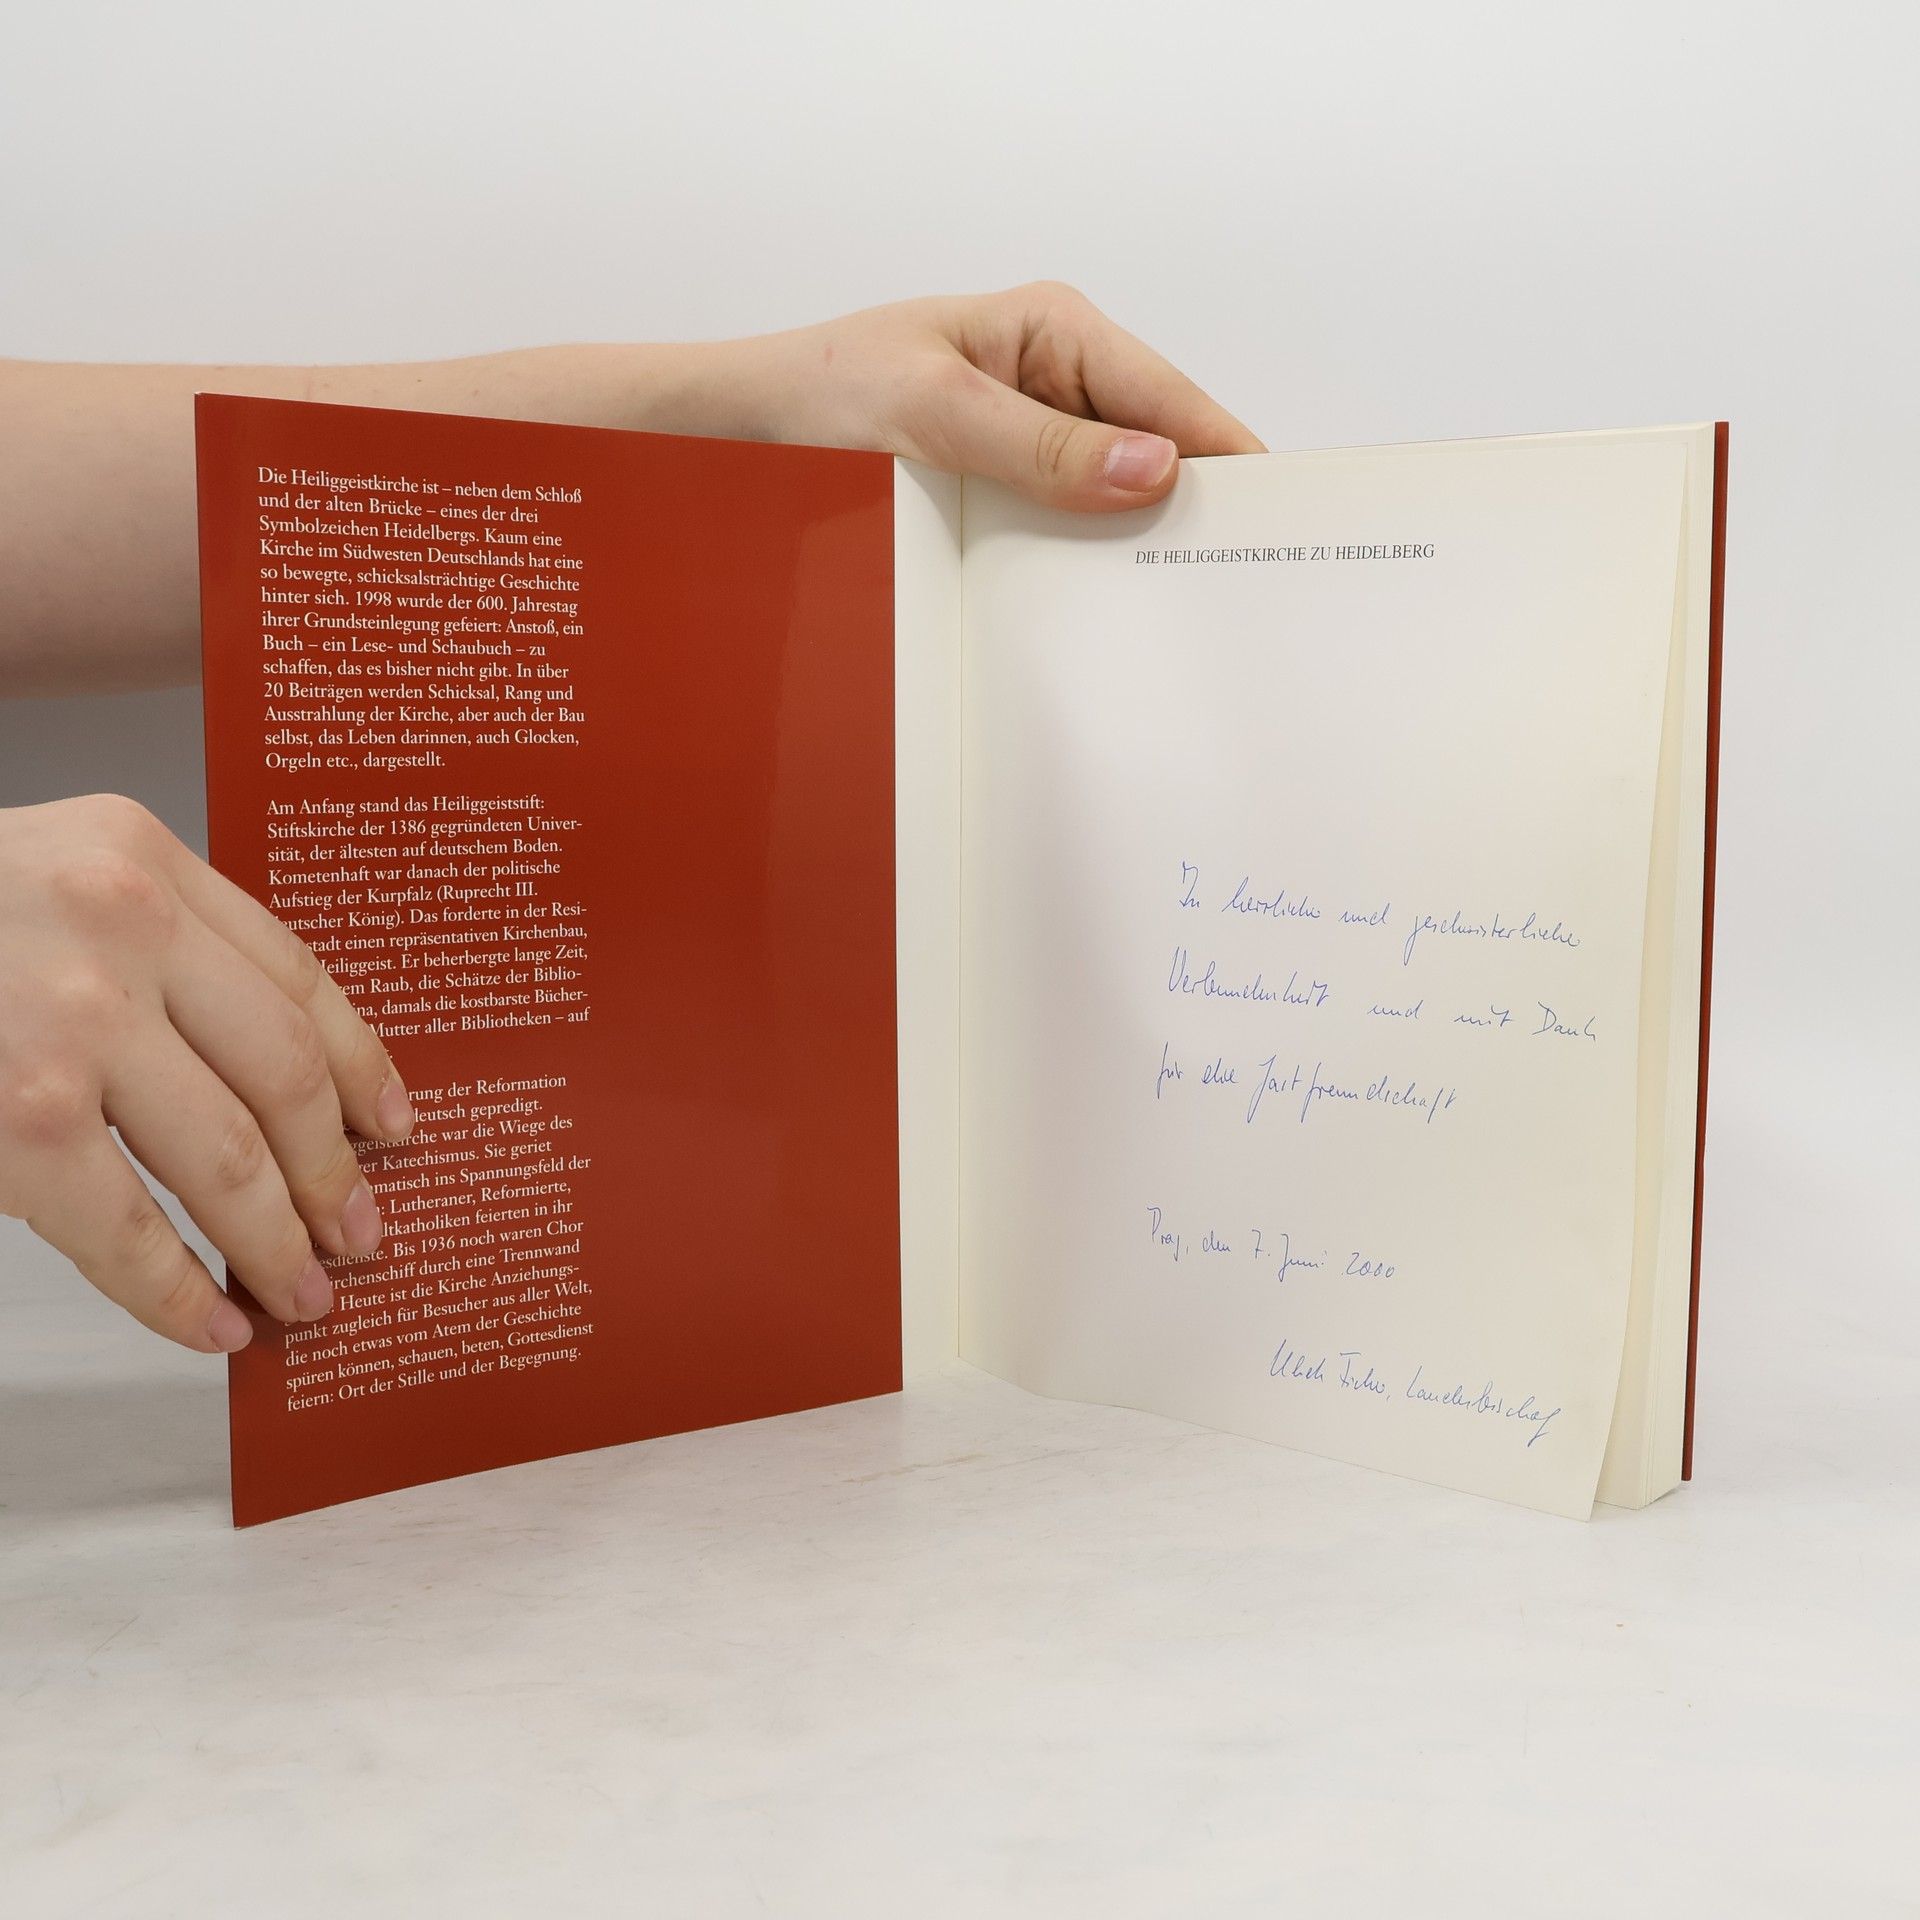 Die Heiliggeistkirche ist – neben dem Schloß
und der alten Brücke – eines der drei
Symbolzeichen Heidelbergs. Kaum eine
Kirche im Südwesten Deutschlands hat eine
so bewegte, schicksalsträchtige Geschichte
hinter sich. 1998 wurde der 600. Jahrestag
ihrer Grundsteinlegung gefeiert: Anstoß, ein
Buch – ein Lese- und Schaubuch – zu
schaffen, das es bisher nicht gibt. In über
20 Beiträgen werden Schicksal, Rang und
Ausstrahlung der Kirche, aber auch der Bau
selbst, das Leben darinnen, auch Glocken,
Orgeln etc., dargestellt.
Am Anfang stand das Heiliggeiststift:
Stiftskirche der 1386 gegründeten Univer-
sität, der ältesten auf deutschem Boden.
Kometenhaft war danach der politische
Aufstieg der Kurpfalz (Ruprecht III.
eutscher König). Das forderte in der Resi-
stadt einen repräsentativen Kirchenbau,
Heiliggeist. Er beherbergte lange Zeit,
em Raub, die Schätze der Biblio-
na, damals die kostbarste Bücher-
Mutter aller Bibliotheken – auf
rung der Reformation
deutsch gepredigt.
ggeistkirche war die Wiege des
er Katechismus. Sie geriet
matisch ins Spannungsfeld der
: Lutheraner, Reformierte,
ltkatholiken feierten in ihr
esdienste. Bis 1936 noch waren Chor
irchenschiff durch eine Trennwand
Heute ist die Kirche Anziehungs-
punkt zugleich für Besucher aus aller Welt,
die noch etwas vom Atem der Geschichte
spüren können, schauen, beten, Gottesdienst
feiern: Ort der Stille und der Begegnung.
DIE HEILIGGEISTKIRCHE ZU HEIDELBERG
In herzlicher und geschwisterlicher
Verbundenheit und mit Dank
für die Gastfreundschaft
Prag, den 7. Juni 2000
Ulrich Fischer, Landesbischof